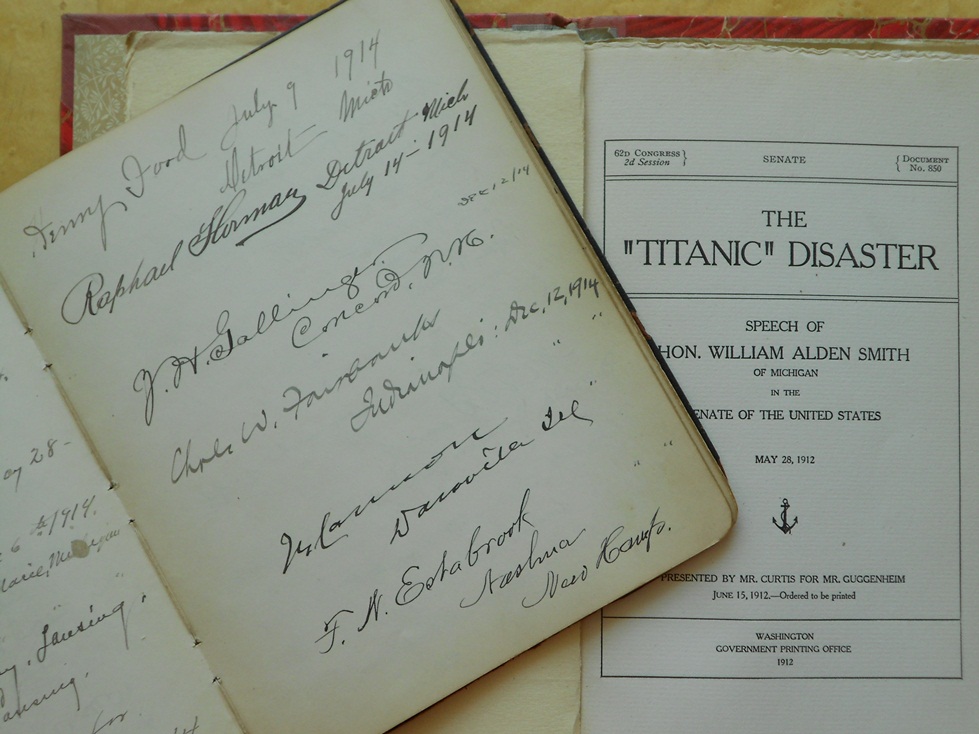 Henry Ford July 9 1914
Detroit Mich
Raphael Herman Detroit Mich
July 14-1914
Dec 12/14
J. H. Gallinger.
Concord, N.H.
Chas W. Fairbanks
Indianaplis: Dec, 12, 1914
" "
Danville Ill "
F. N. Estabrook " "
Nashua
New Hamps.
28-
6 th 1914.
Marie, Michigan
"
Lansing.
Lansing.
62D CONGRESS }
2d Session }
SENATE
{ DOCUMENT
{ No. 850
THE
"TITANIC" DISASTER
SPEECH OF
HON. WILLIAM ALDEN SMITH
OF MICHIGAN
IN THE
ENATE OF THE UNITED STATES
MAY 28, 1912
PRESENTED BY MR. CURTIS FOR MR. GUGGENHEIM
JUNE 15, 1912.—Ordered to be printed
WASHINGTON
GOVERNMENT PRINTING OFFICE
1912